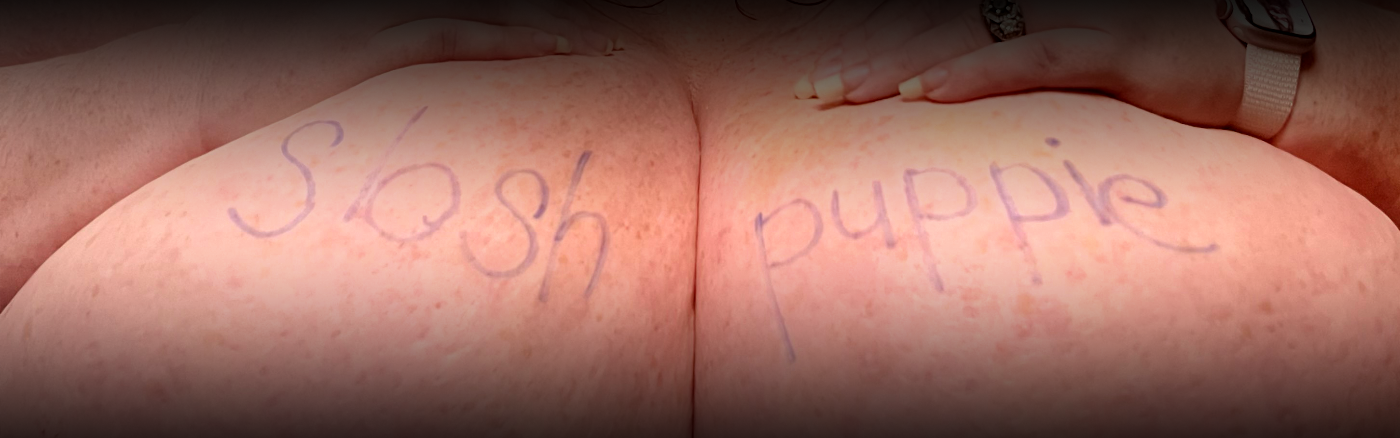 Slosh puppie